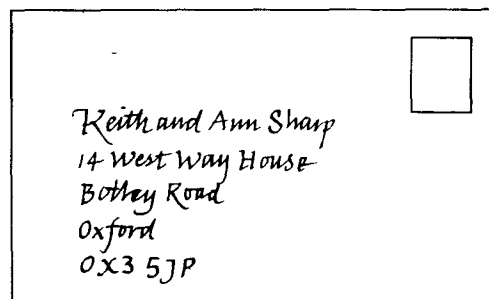 Keith and Ann Sharp
14 West Way House
Botley Road
Oxford
OX3 5JP